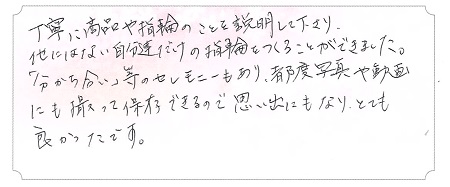 丁寧に商品や指輪のことを説明して下さり、
他にはない自分達だけの指輪をつくることができました。
「分かち合い」等のセレモニーもあり、都度写真や動画
にも撮って保存できるので思い出にもなり、とても
良かったです。